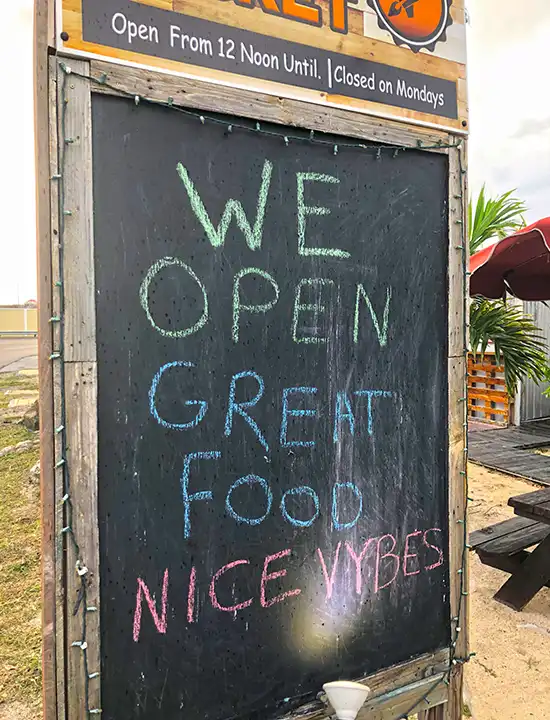 Open From 12 Noon Until. | Closed on Mondays
WE
OPEN
GREAT
FOOD
NICE VYBES